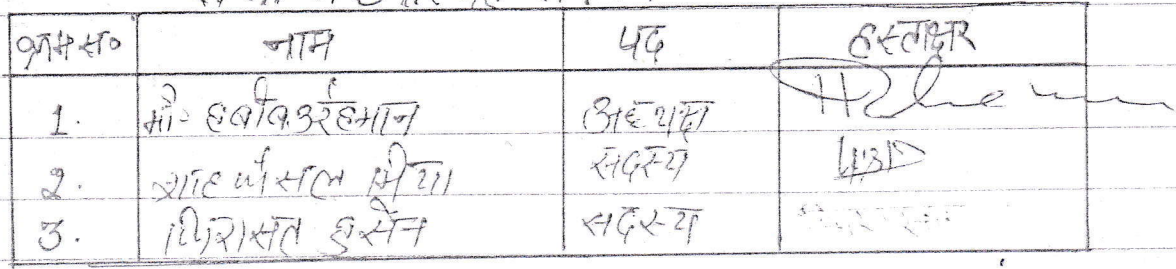 क्रम सं० नाम पद हस्ताक्षर
1. मो० हबीबउर्रहमान अध्यक्ष
2. शाह फैसल मीयां सदस्य
3. विरासत हुसैन सदस्य